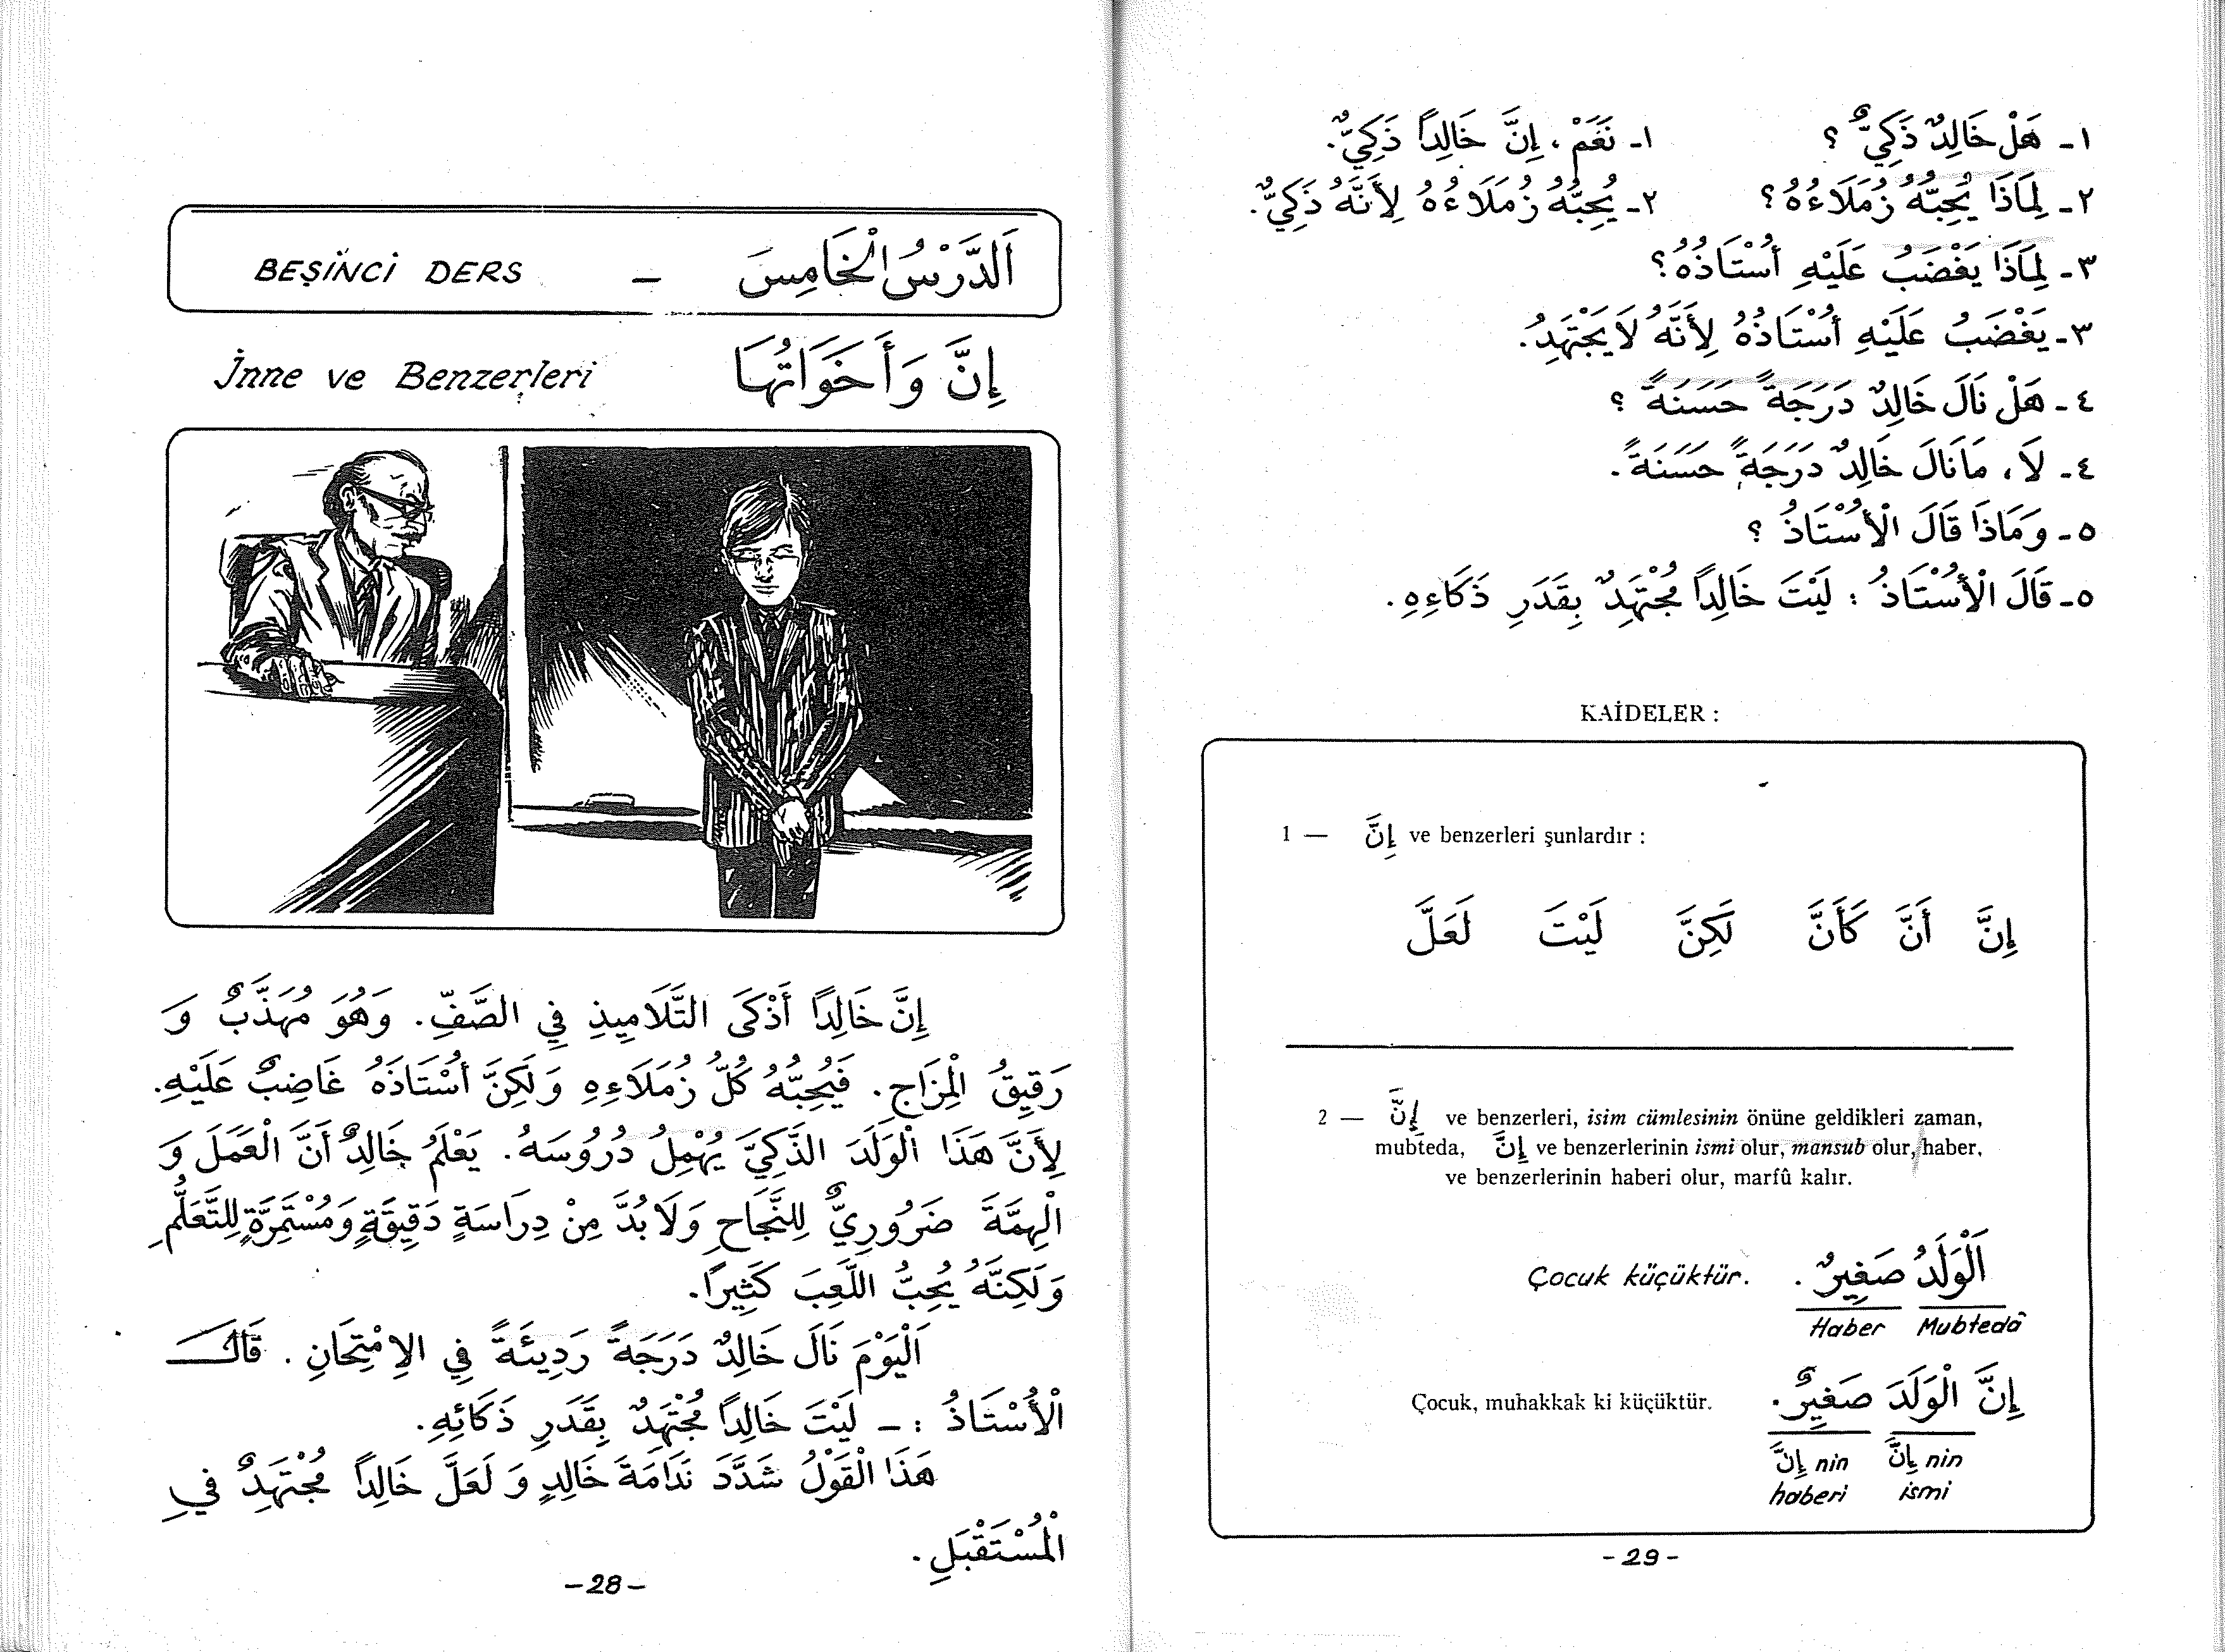 اَلدَّرْسُ الْخَامِسَ – BEŞİNCİ DERS
إِنَّ وَأَخَوَاتُهَا İnne ve Benzerleri
إِنَّ خَالِدًا أَذْكَى التَّلَامِيذِ فِي الصَّفِّ. وَهُوَ مُهَذَّبٌ وَ
رَقِيقُ الْمِزَاجِ. فَيُحِبُّهُ كُلُّ زُمَلَاءِهِ وَلَكِنَّ أُسْتَاذَهُ غَاضِبٌ عَلَيْهِ.
لِأَنَّ هَذَا الْوَلَدَ الذَّكِيَّ يُهْمِلُ دُرُوسَهُ. يَعْلَمُ خَالِدٌ أَنَّ الْعَمَلَ وَ
الْهِمَّةَ ضَرُورِيٌّ لِلنَّجَاحِ وَلَا بُدَّ مِنْ دِرَاسَةٍ دَقِيقَةٍ وَمُسْتَمِرَّةٍ لِلتَّعَلُّمِ
وَلَكِنَّهُ يُحِبُّ اللَّعِبَ كَثِيرًا.
اَلْيَوْمَ نَالَ خَالِدٌ دَرَجَةً رَدِيئَةً فِي الِامْتِحَانِ. قَالَ
الْأُسْتَاذُ : – لَيْتَ خَالِداً مُجْتَهِدٌ بِقَدَرِ ذَكَائِهِ.
هَذَا الْقَوْلُ شَدَّدَ نَدَامَةَ خَالِدٍ وَ لَعَلَّ خَالِداً مُجْتَهِدٌ فِي
الْمُسْتَقْبَلِ.
–28–
١- هَلْ خَالِدٌ ذَكِيٌّ ؟ ١- نَعَمْ، إِنَّ خَالِداً ذَكِيٌّ.
٢- لِمَاذَا يُحِبُّهُ زُمَلَاءُهُ؟ ٢- يُحِبُّهُ زُمَلَاءُهُ لِأَنَّهُ ذَكِيٌّ.
٣- لِمَاذَا يَغْضَبُ عَلَيْهِ أُسْتَاذُهُ؟
٣- يَغْضَبُ عَلَيْهِ أُسْتَاذُهُ لِأَنَّهُ لَا يَجْتَهِدُ.
٤- هَلْ نَالَ خَالِدٌ دَرَجَةً حَسَنَةً ؟
٤- لَا، مَا نَالَ خَالِدٌ دَرَجَةً حَسَنَةً.
٥- وَمَاذَا قَالَ الْأُسْتَاذُ ؟
٥- قَالَ الْأُسْتَاذُ : لَيْتَ خَالِداً مُجْتَهِدٌ بِقَدَرِ ذَكَاءِهِ.
KAİDELER :
1 — إِنَّ ve benzerleri şunlardır :
إِنَّ أَنَّ كَأَنَّ لَكِنَّ لَيْتَ لَعَلَّ
2 — إِنَّ ve benzerleri, isim cümlesinin önüne geldikleri zaman,
mubteda, إِنَّ ve benzerlerinin ismi olur, mansub olur, haber,
ve benzerlerinin haberi olur, marfû kalır.
اَلْوَلَدُ صَغِيرٌ . Çocuk küçüktür.
Haber Mubtedâ
إِنَّ الْوَلَدَ صَغِيرٌ. Çocuk, muhakkak ki küçüktür.
إِنَّ nin إِنَّ nin
haberi ismi
-29-